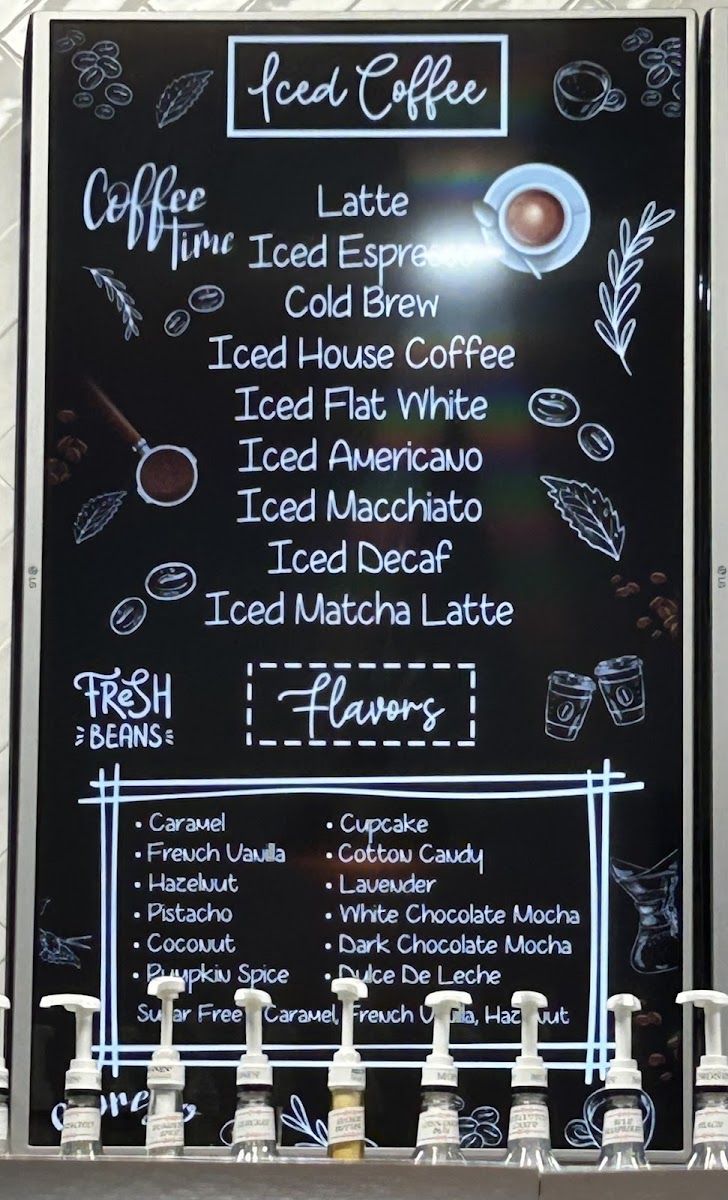 Iced Coffee
Coffee
Time
Latte
Iced Espresso
Cold Brew
Iced House Coffee
Iced Flat White
Iced Americano
Iced Macchiato
Iced Decaf
Iced Matcha Latte
FReSH
BEANS
Flavors
• Caramel
• French Vanilla
• Hazelnut
• Pistacho
• Coconut
• Pumpkin Spice
• Cupcake
• Cotton Candy
• Lavender
• White Chocolate Mocha
• Dark Chocolate Mocha
• Dulce De Leche
Sugar Free Caramel, French Vanilla, Hazelnut
LG
LG